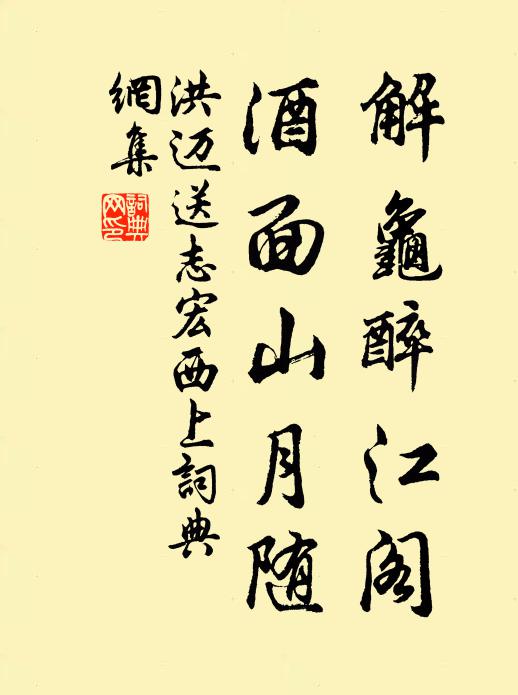 解龜醉江阁
酒面山月随
洪迈送志宏西上詞典
網集
詞典
网印